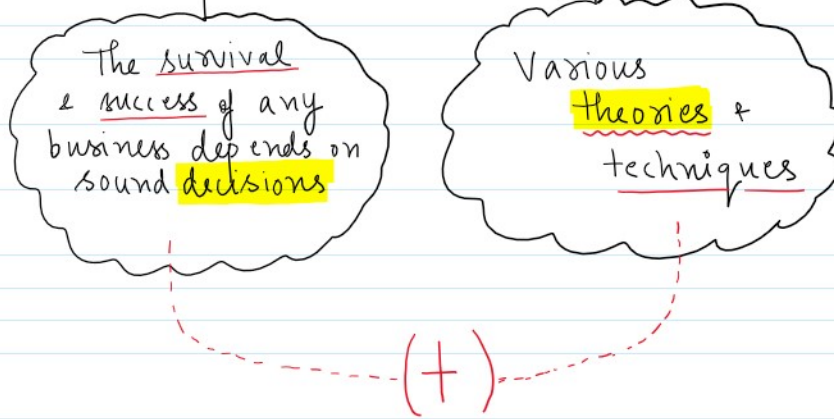 The survival
& success of any
business depends on
sound decisions
Various
theories &
techniques
(+)